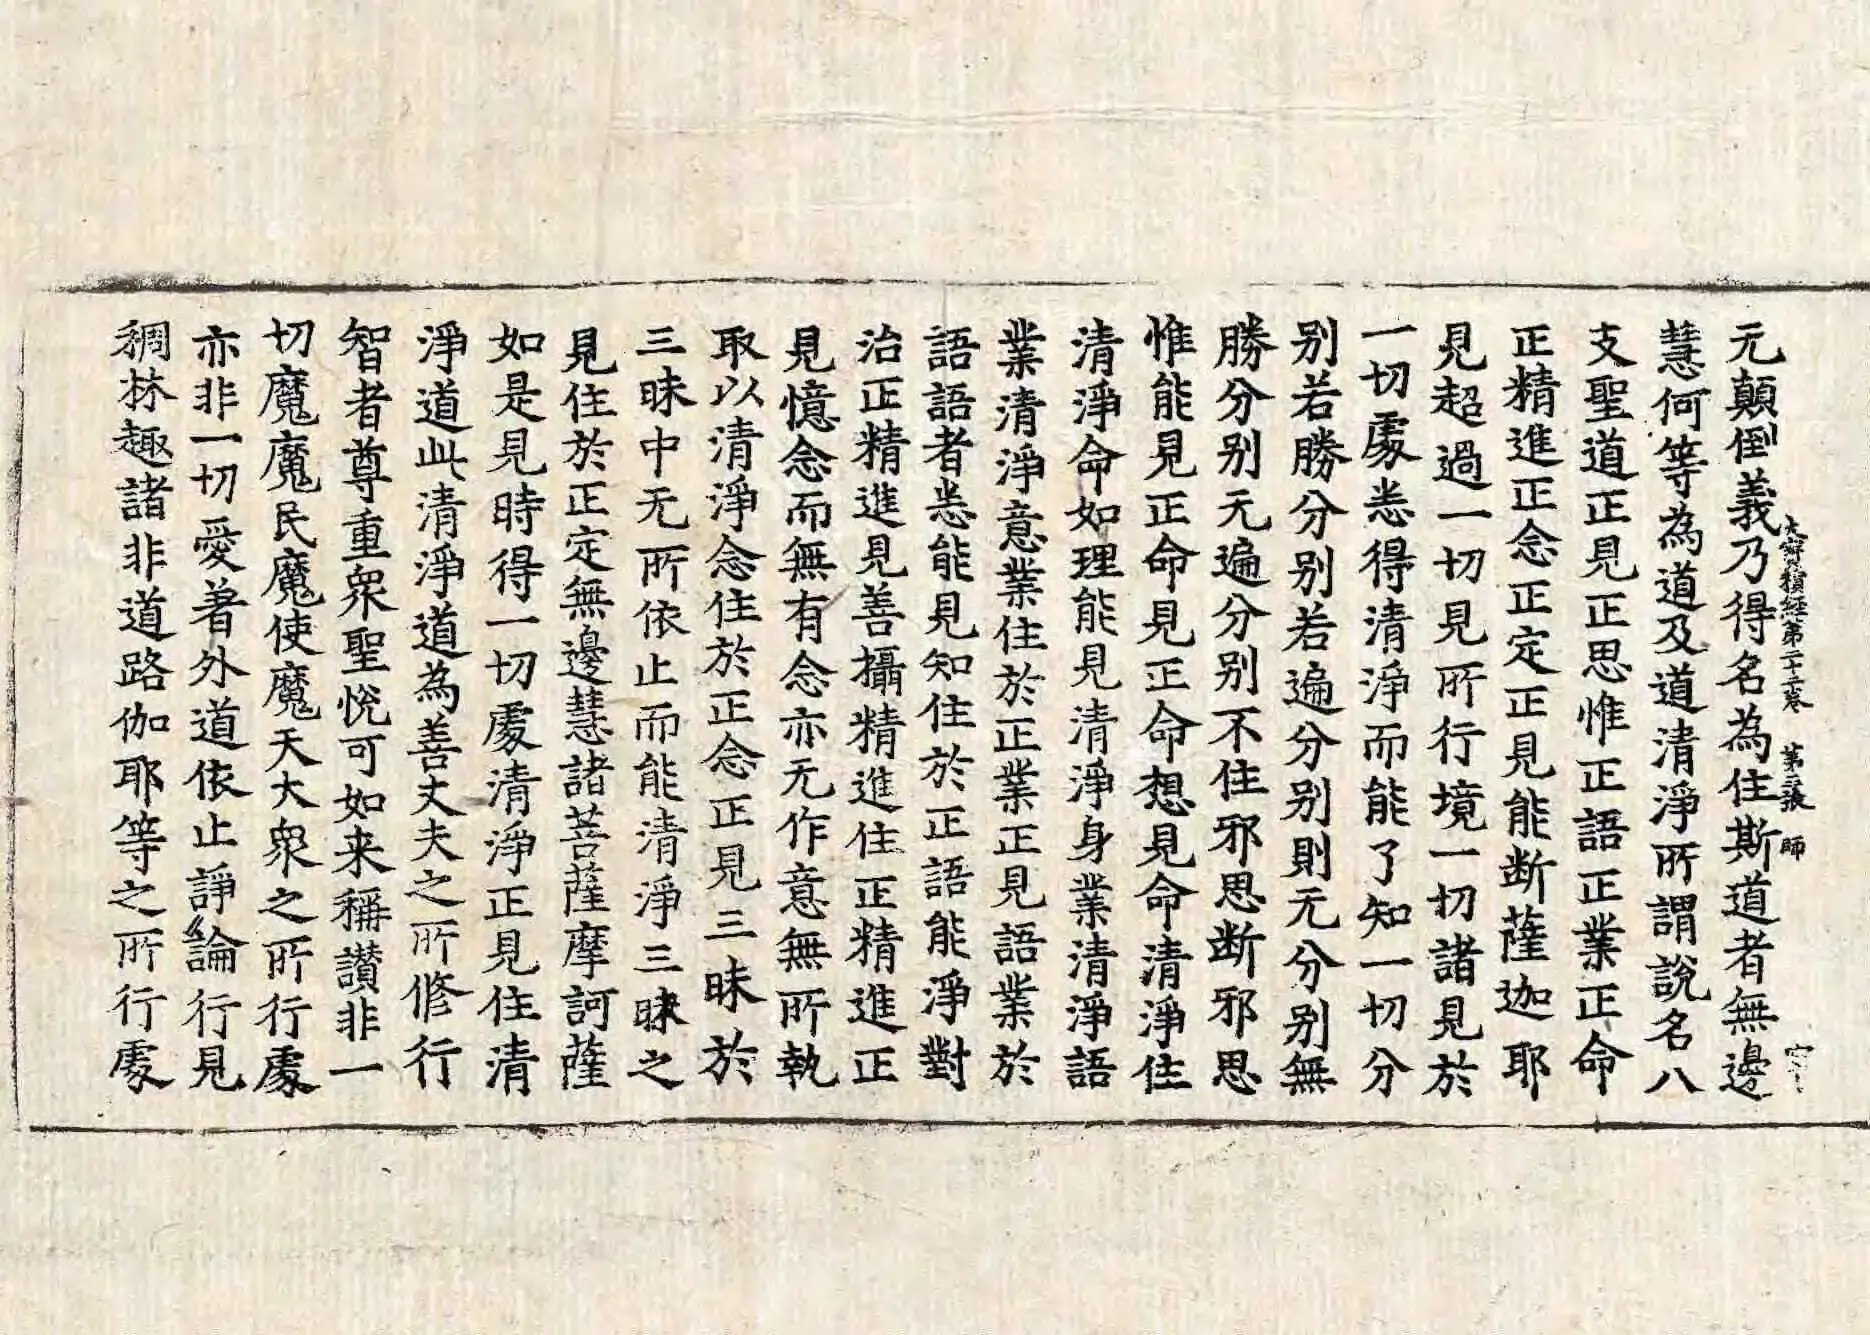 无顛倒義乃得名為住斯道者無邊
大寶積經第二十二卷 第三張 師
慧何等為道及道清淨所謂說名八
支聖道正見正思惟正語正業正命
正精進正念正定正見能断薩迦耶
見超過一切見所行境一切諸見於
一切處悉得清淨而能了知一切分
别若勝分别若遍分别則无分别無
勝分别无遍分别不住邪思断邪思
惟能見正命見正命想見命清淨住
清淨命如理能見清淨身業清淨語
業清淨意業住於正業正見語業於
語語者悉能見知住於正語能淨對
治正精進見善攝精進住正精進正
見憶念而無有念亦无作意無所執
取以清淨念住於正念正見三昧於
三昧中无所依止而能清淨三昧之
見住於正定無邊慧諸菩薩摩訶薩
如是見時得一切處清淨正見住清
淨道此清淨道為善丈夫之所修行
智者尊重衆聖悅可如来稱讃非一
切魔魔民魔使魔天大衆之所行處
亦非一切愛著外道依止諍論行見
稠林趣諸非道路伽耶等之所行處